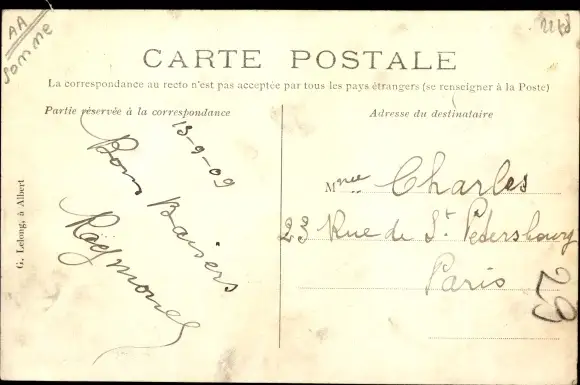 AA
Somme
2268
CARTE POSTALE
La correspondance au recto n'est pas acceptée par tous les pays étrangers (se renseigner à la Poste)
Partie réservée à la correspondance
Adresse du destinataire
13-9-09
Bons Baisers
Raymond
Mmee Charles
23 Rue de St Petersbourg
Paris
23
G. Lelong, à Albert